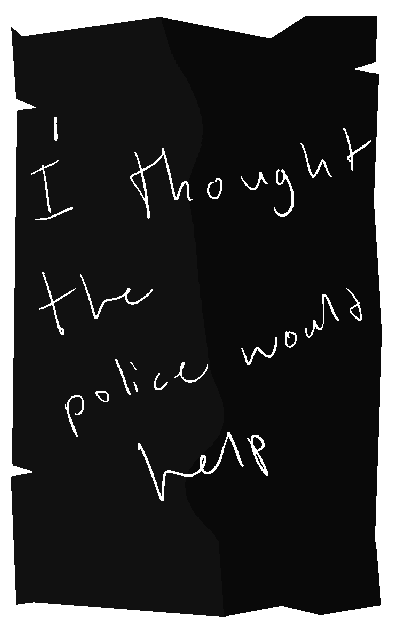 I thought
the
police would
help